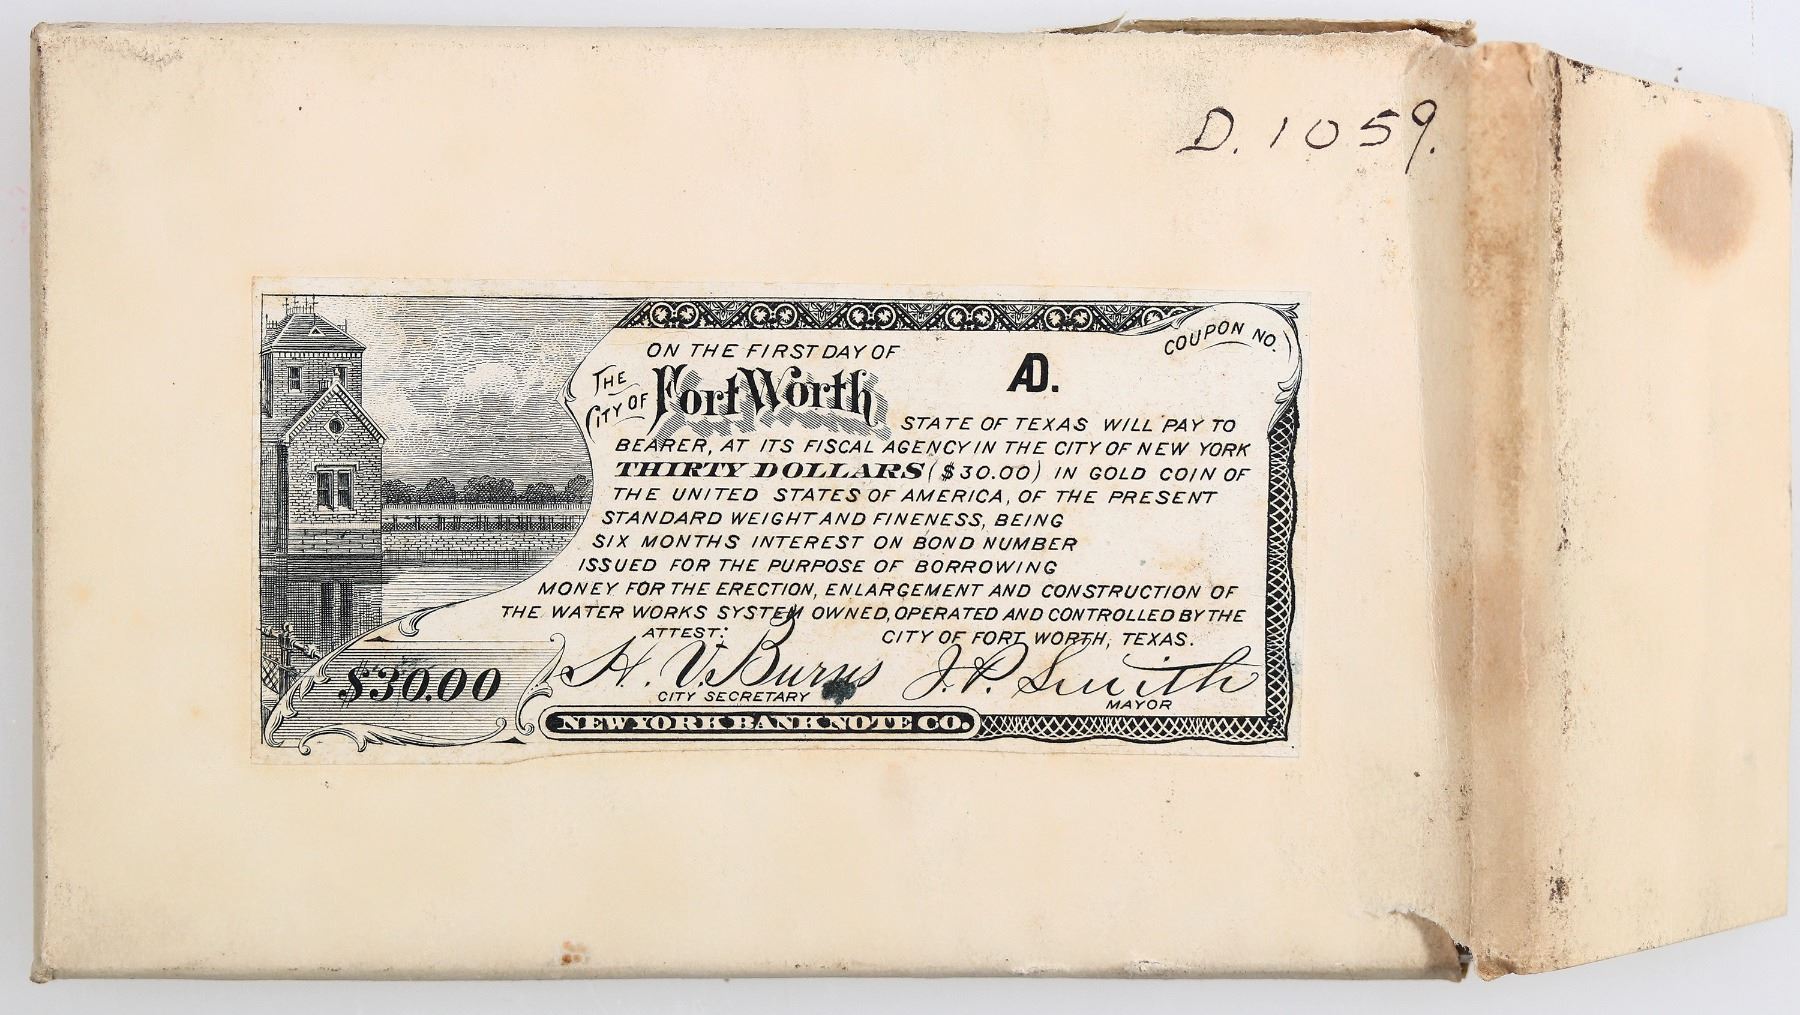 D. 1059.
COUPON NO.
ON THE FIRST DAY OF
A.D.
THE CITY OF Fort Worth
STATE OF TEXAS WILL PAY TO
BEARER, AT ITS FISCAL AGENCY IN THE CITY OF NEW YORK
THIRTY DOLLARS ($30.00) IN GOLD COIN OF
THE UNITED STATES OF AMERICA, OF THE PRESENT
STANDARD WEIGHT AND FINENESS, BEING
SIX MONTHS INTEREST ON BOND NUMBER
ISSUED FOR THE PURPOSE OF BORROWING
MONEY FOR THE ERECTION, ENLARGEMENT AND CONSTRUCTION OF
THE WATER WORKS SYSTEM OWNED, OPERATED AND CONTROLLED BY THE
ATTEST: CITY OF FORT WORTH, TEXAS.
H. V. Burns J. P. Smith
CITY SECRETARY MAYOR
$30.00
NEW YORK BANK NOTE CO.